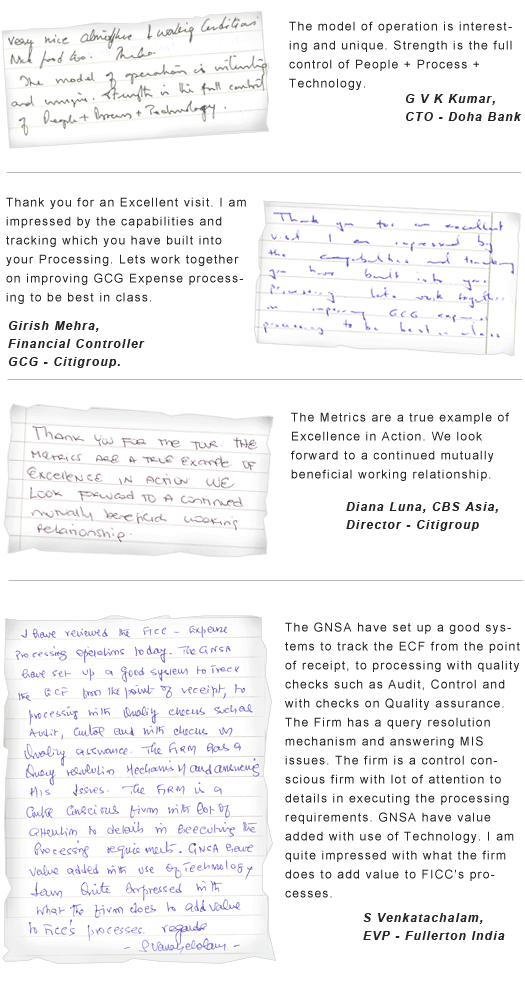 very nice atmosphere & working conditions
Nice food too. Thanks.
The model of operation is interesting
and unique. Strength is the full control
of People + Process + Technology.
The model of operation is interest-
ing and unique. Strength is the full
control of People + Process +
Technology.
G V K Kumar,
CTO - Doha Bank
Thank you for an Excellent visit. I am
impressed by the capabilities and
tracking which you have built into
your Processing. Lets work together
on improving GCG Expense process-
ing to be best in class.
Girish Mehra,
Financial Controller
GCG - Citigroup.
Thank you for an excellent
visit I am impressed by
the capabilities and tracking
you have built into your
Processing lets work together
on improving GCG expense
processing to be best in class
THANK YOU FOR THE TOUR. THE
METRICS ARE A TRUE EXAMPLE OF
EXCELLENCE IN ACTION WE
LOOK FORWARD TO A CONTINUED
mutually beneficial working
relationship.
The Metrics are a true example of
Excellence in Action. We look
forward to a continued mutually
beneficial working relationship.
Diana Luna, CBS Asia,
Director - Citigroup
I have reviewed the FICC - Expense
Processing operations today. The GNSA
have set up a good system to track
the ECF from the point of receipt, to
processing with Quality checks such as
Audit, Control and with checks on
Quality assurance. The Firm has a
Query resolution Mechanism and answering
MIS Issues. The FIRM is a
Control Conscious Firm with lot of
attention to details in executing the
Processing requirements. GNSA have
value added with use of Technology
I am Quite Impressed with
what the firm does to add value
to FICC's processes. regards
- S Venkatachalam -
The GNSA have set up a good sys-
tems to track the ECF from the point
of receipt, to processing with quality
checks such as Audit, Control and
with checks on Quality assurance.
The Firm has a query resolution
mechanism and answering MIS
issues. The firm is a control con-
scious firm with lot of attention to
details in executing the processing
requirements. GNSA have value
added with use of Technology. I am
quite impressed with what the firm
does to add value to FICC's pro-
cesses.
S Venkatachalam,
EVP - Fullerton India